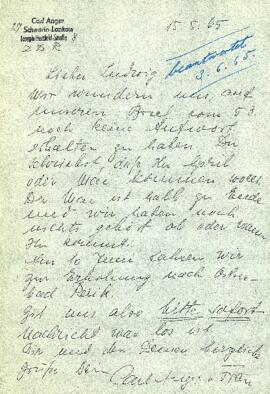 Carl Aager
Schwerin-Lankow
15.5.65
beantwortet
3.6.65.
Lieber Ludwig
Wir wundern uns auf
unseren Brief vom 5.3.
noch keine Antwort
erhalten zu haben. Du
schreibst, daß Ihr April
oder Mai kommen wollt.
Der Mai ist halb zu Ende
und wir haben noch
nichts gehört ob oder wann
Ihr kommt.
Am 10 Juni fahren wir
zur Erholung nach
bad
Gib uns also bitte sofort
Nachricht was los ist
Dir und den Deinen herzliche
Grüße Dein
Carl u. Frau